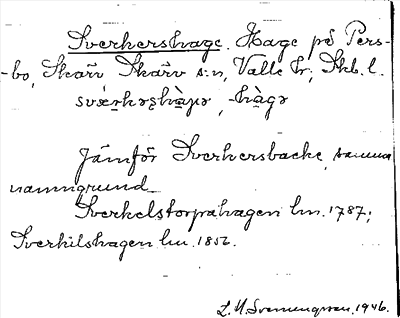 Sverkershage. Hage på Pers-
-bo, Skärv Skärv s:n, Valle hr, Skb. l.
-hàgə
Jämför Sverkersbacke, samma
namngrund
Sverkelstorpahagen lm. 1787;
Sverkilshagen lm. 1856.
1946.